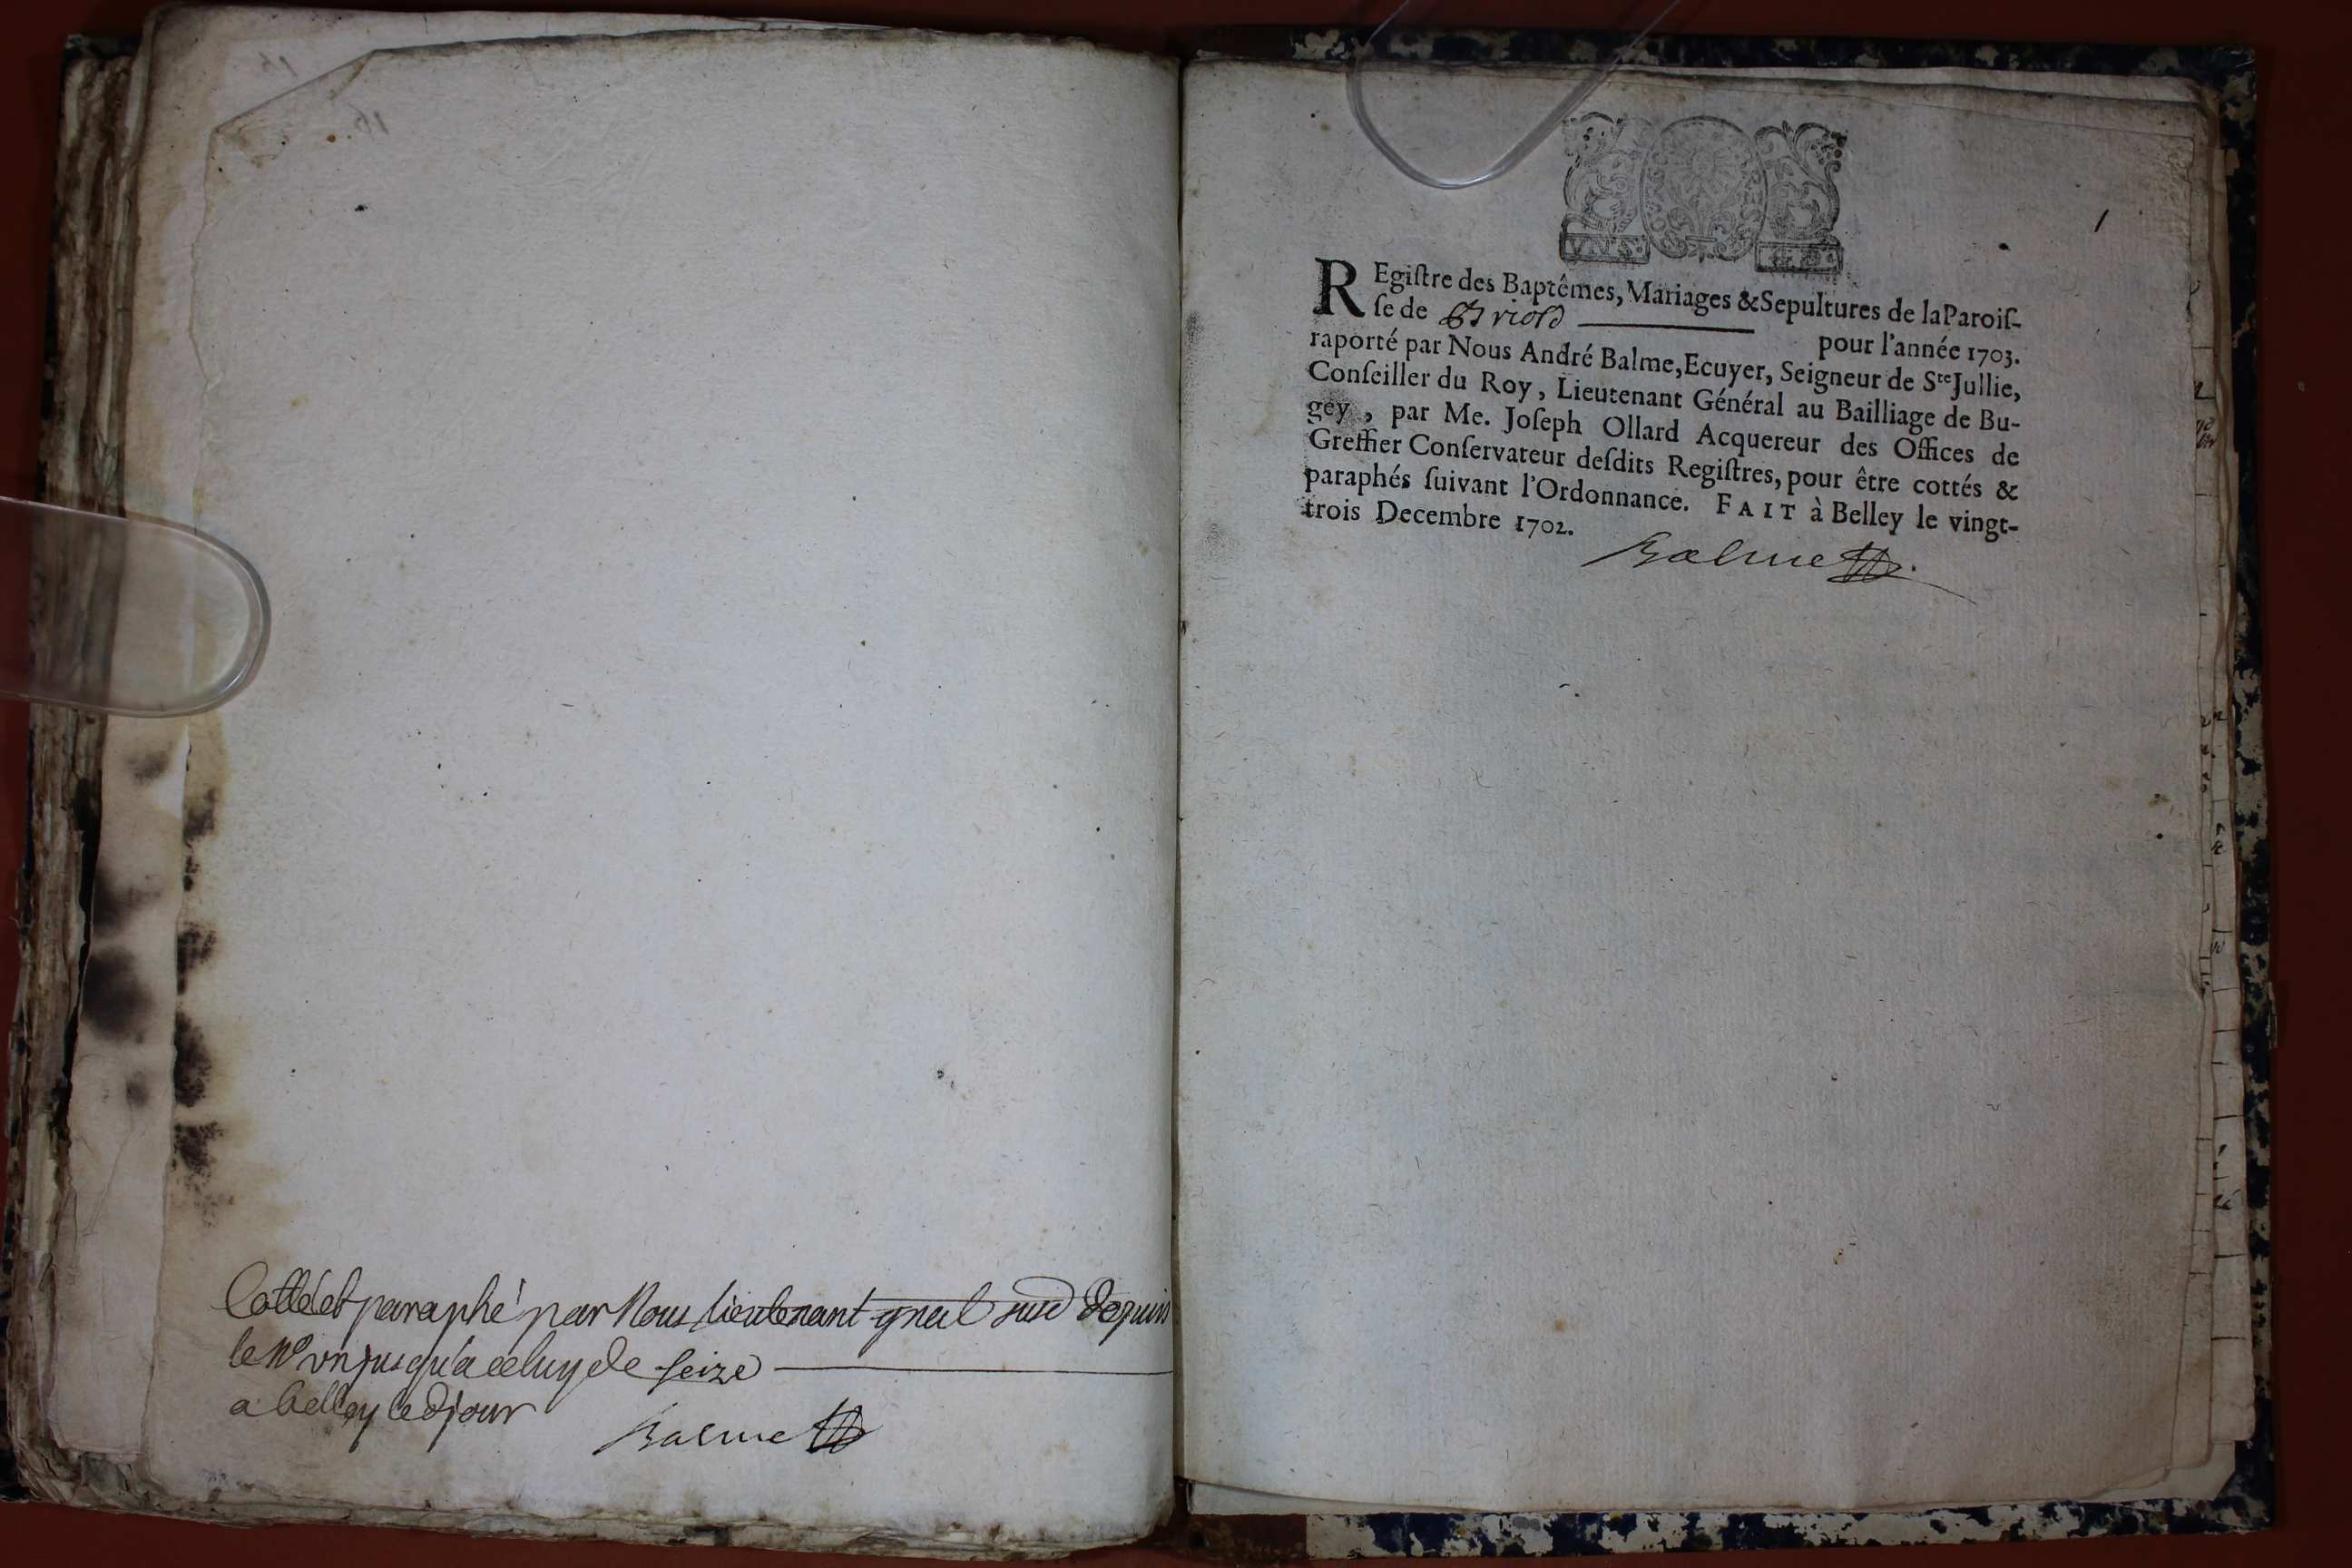 Cotté et paraphé par Nous lieutenant gnal susd depuis
le No un jusqu'a celuy de seize
a belley led jour
Balme
1
VN S.
REgiſtre des Baptêmes, Mariages & Sepultures de la Paroiſ-
ſe de Briord pour l'année 1703.
raporté par Nous André Balme, Ecuyer, Seigneur de Ste Jullie,
Conſeiller du Roy, Lieutenant Général au Bailliage de Bu-
gey, par Me. Joſeph Ollard Acquereur des Offices de
Greffier Conſervateur deſdits Regiſtres, pour être cottés &
paraphés ſuivant l'Ordonnance. FAIT à Belley le vingt-
trois Decembre 1702.
Balme